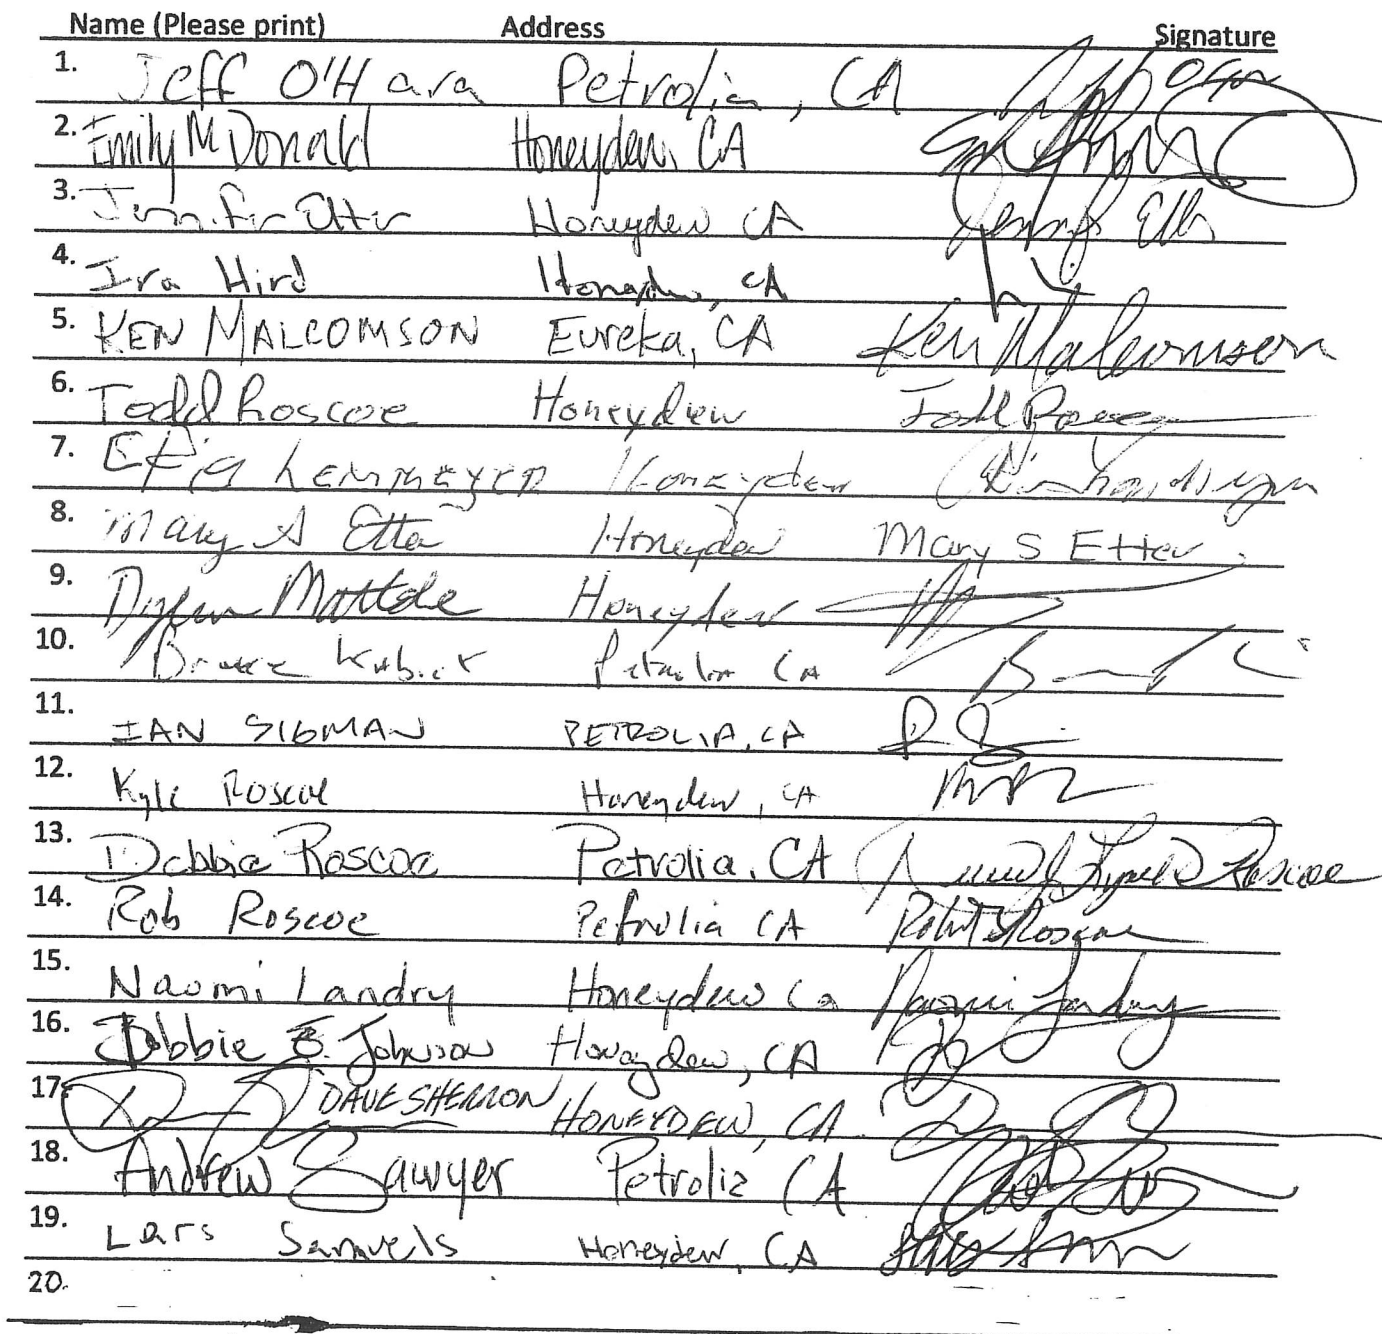 Name (Please print) Address Signature
1. Jeff O'Hara Petrolia, CA
2. Emily McDonald Honeydew, CA
3. Jennifer Etter Honeydew CA Jennif Etter
4. Ira Hird Honeydew, CA
5. KEN MALCOMSON Eureka, CA Ken Malcomson
6. Todd Roscoe Honeydew Todd Roscoe
7. Honeydew
8. Mary S Etter Honeydew Mary S Etter
9. Dylan Mattole Honeydew
10. Kubick Petrolia CA
11. IAN SIGMAN PETROLIA, CA
12. Kyle Roscoe Honeydew, CA
13. Debbie Roscoe Petrolia, CA Roscoe
14. Rob Roscoe Petrolia CA Robert Roscoe
15. Naomi Landry Honeydew Ca Naomi Landry
16. Debbie E. Johnson Honeydew, CA
17. DAVE SHERMON HONEYDEW, CA
18. Andrew Sawyer Petrolia CA
19. Lars Samuels Honeydew, CA
20.